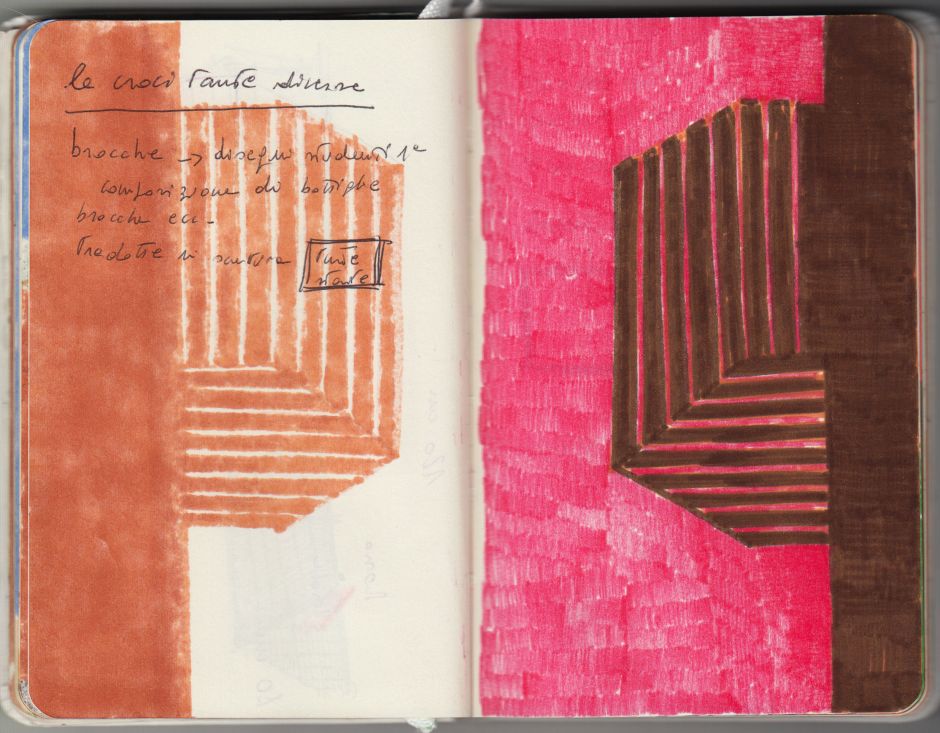 le croci tante diverse
brocche → disegni studenti 1ª
composizione di bottiglie
brocche ecc -
tradotte in
tante